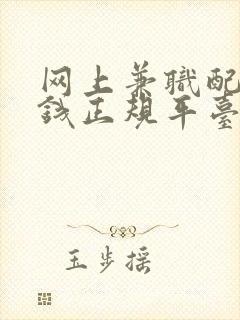 网上兼职配
錢正规平臺
玉步摇